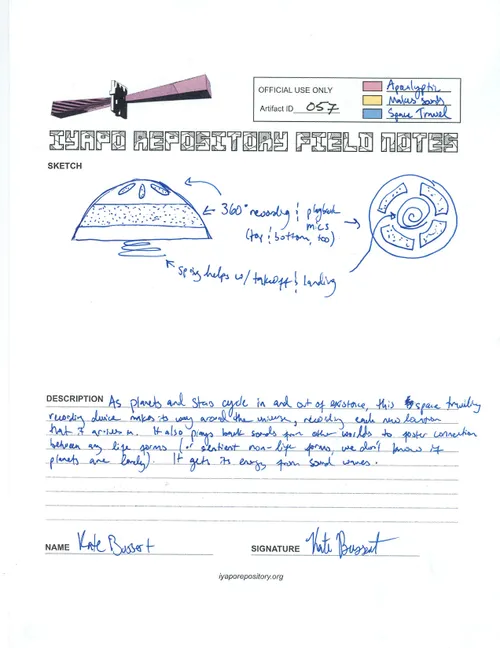 OFFICIAL USE ONLY
Artifact ID 057
Apocalyptic
Makes sounds
Space Travel
IYAPO REPOSITORY FIELD NOTES
SKETCH
360° recording & playback
mics
(top & bottom, too)
spring helps w/ takeoff & landing
DESCRIPTION As planets and stars cycle in and out of existence, this space traveling
recording device makes its way around the universe, recording each new
that it arrives in. It also plays back sounds from other worlds to foster connection
between any life forms (or sentient non-life forms, we don't know if
planets are lonely). It gets its energy from sound waves.
NAME Kate Bussert
SIGNATURE Kate Bussert
iyaporepository.org